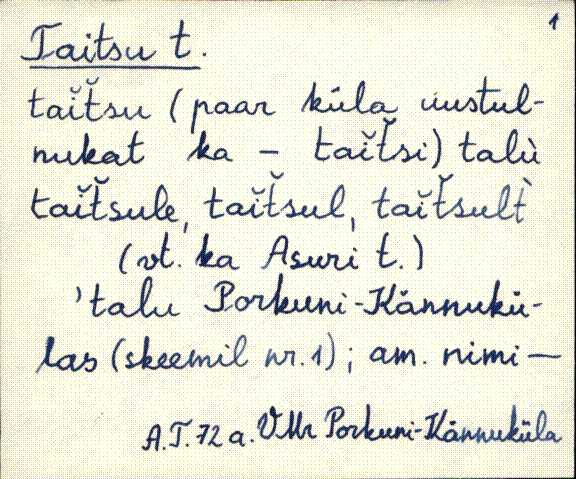 1
Taitsu t.
taĭt̆su (paar küla uustul-
nukat ka – taĭt̆si) talù
taĭt̆sule, taĭt̆sul, taĭt̆sult̀
(vt. ka Asuri t.)
'talu Porkuni-Kännukü-
las (skeemil nr. 1); am. nimi —
A.T. 72 a. VMr Porkuni-Kännuküla